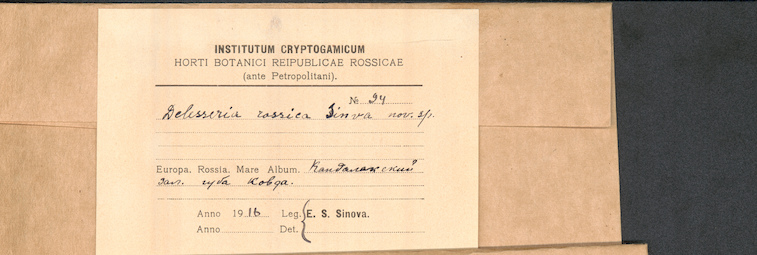 INSTITUTUM CRYPTOGAMICUM
HORTI BOTANICI REIPUBLICAE ROSSICAE
(ante Petropolitani).
№ 94
Delesseria rossica Sinva nov. sp.
Europa. Rossia. Mare Album. Кандалакский
зал. губа Ковда.
Anno 1916 Leg. E. S. Sinova.
Anno Det.